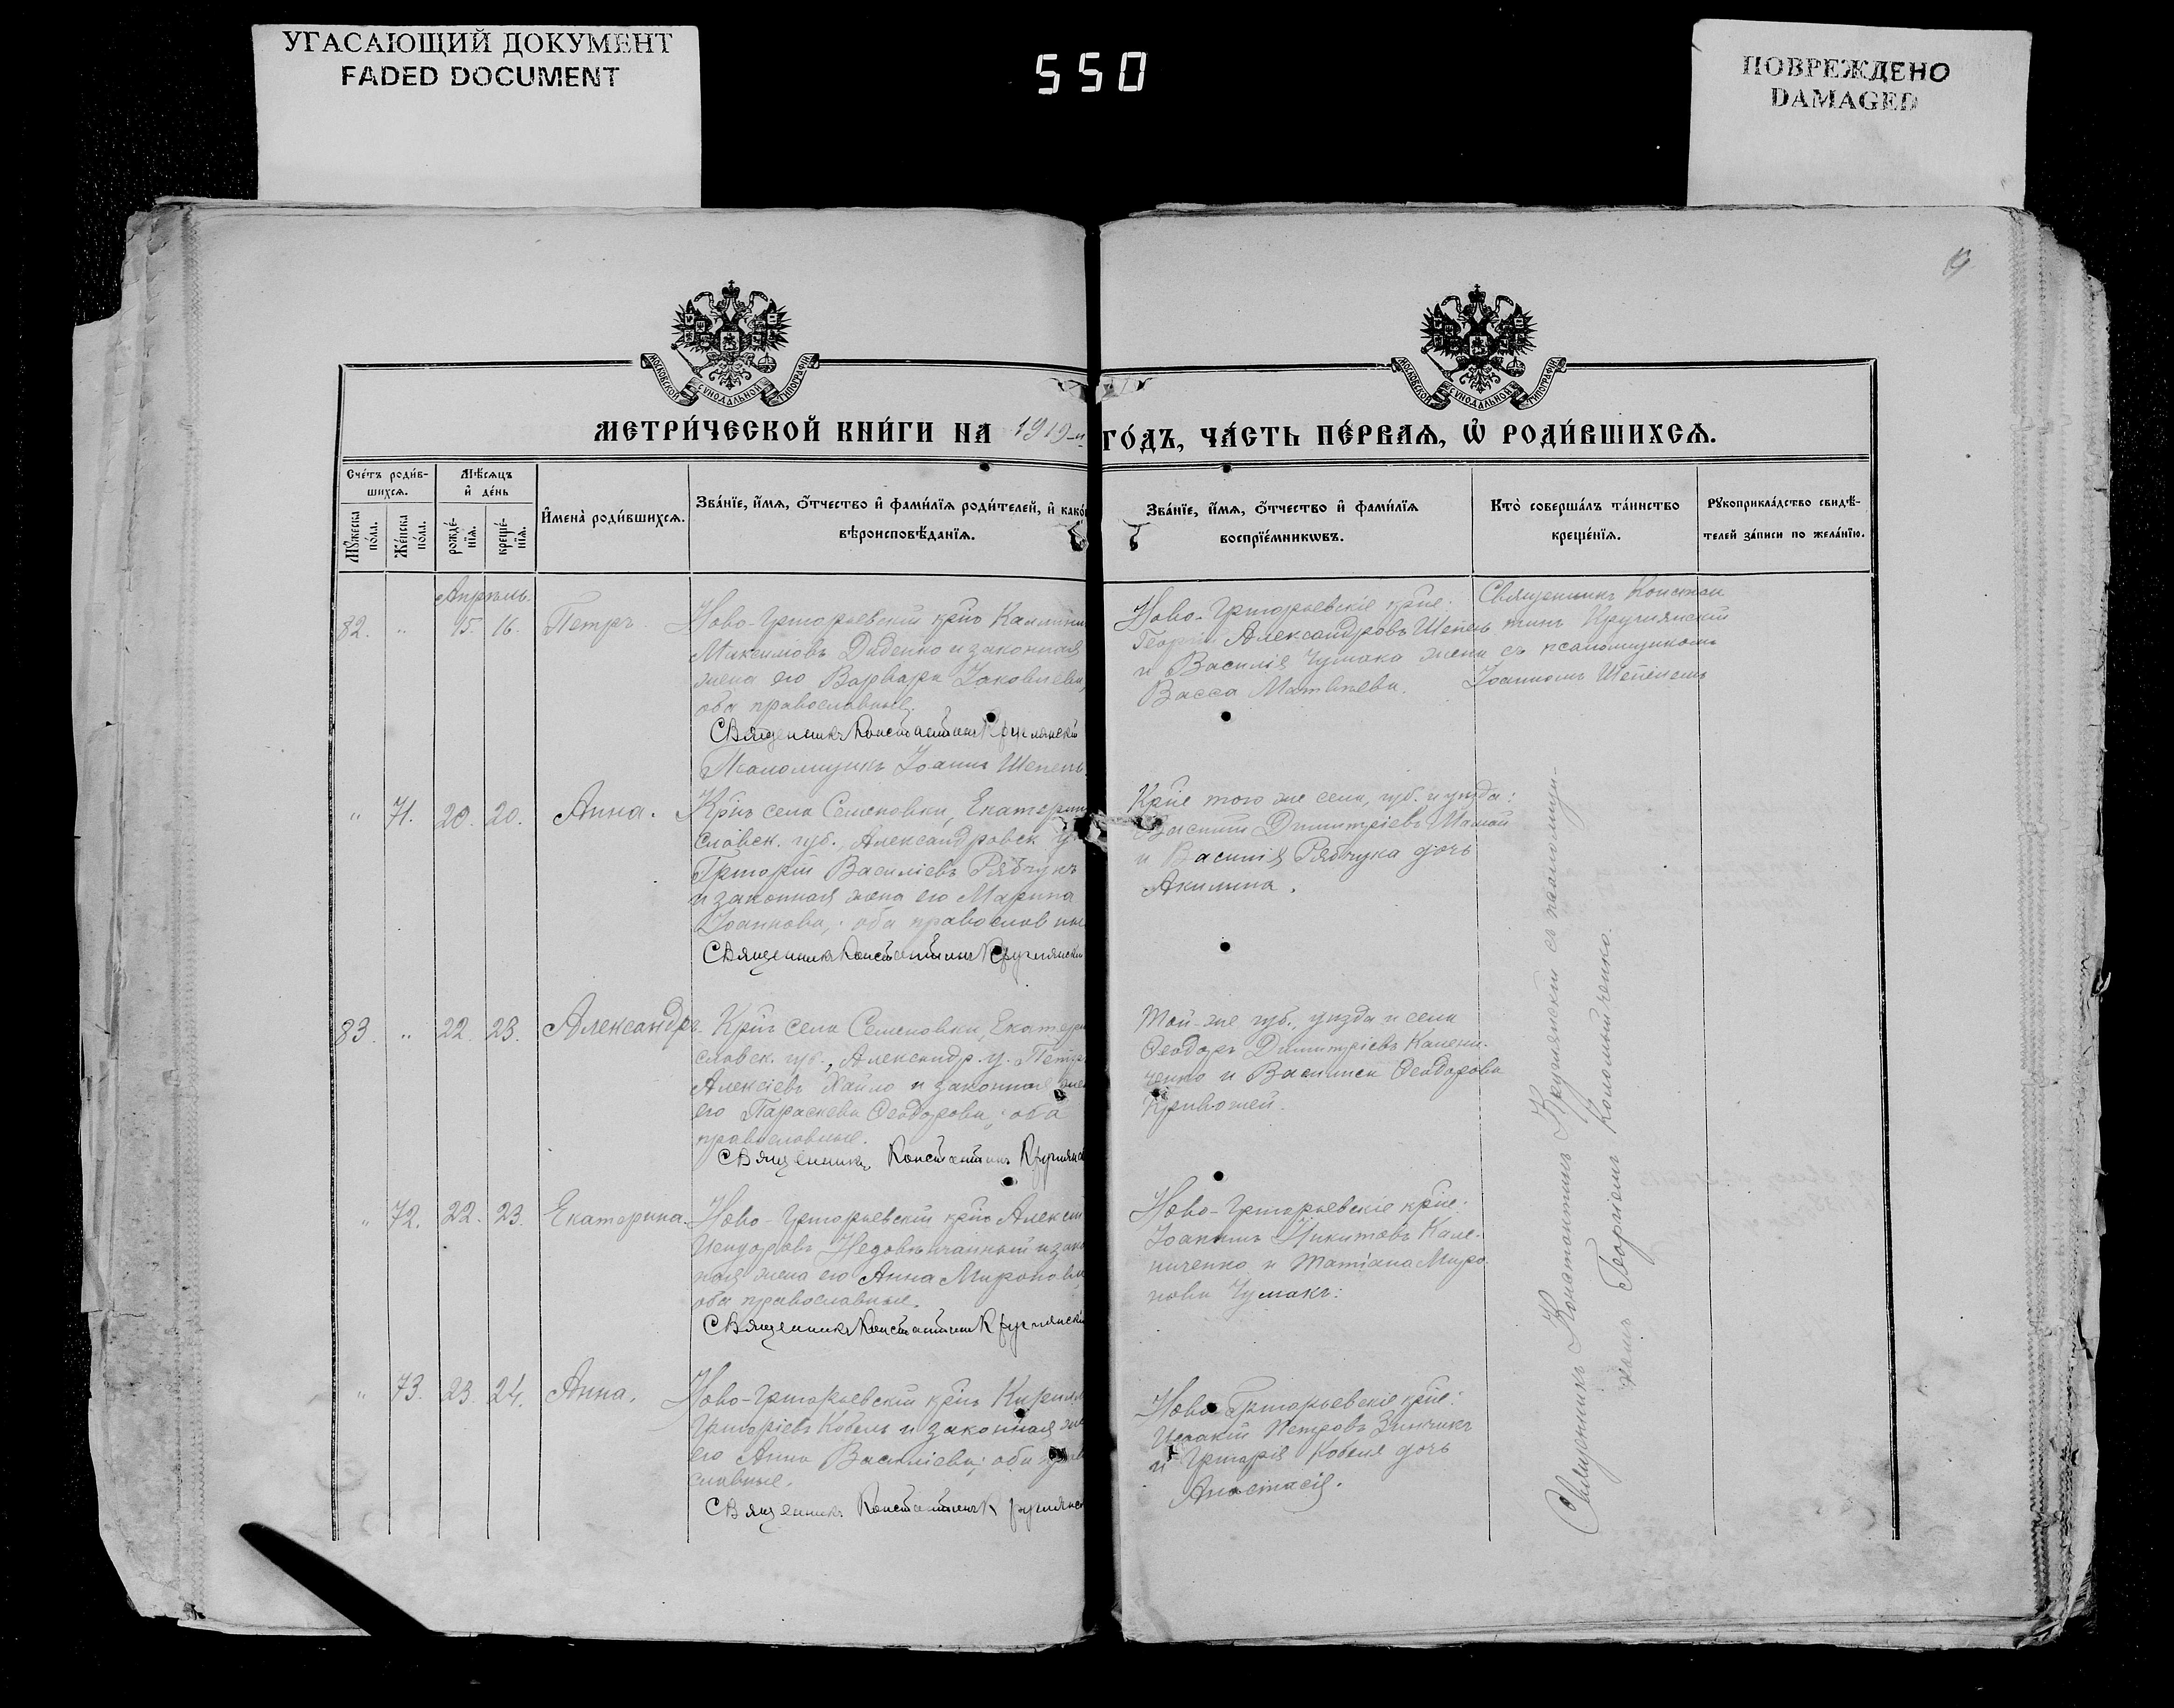 УГАСАЮЩИЙ ДОКУМЕНТ
FADED DOCUMENT
550
ПОВРЕЖДЕНО
DAMAGED
19
МОСКОВСКОЙ СУНОДАЛЬНОЙ ТИПОГРАФІИ
МОСКОВСКОЙ СУНОДАЛЬНОЙ ТИПОГРАФІИ
МЕТРИ́ЧЕСКОЙ КНИ́ГИ НА 1919-й
ГО́ДЪ, ЧА́СТЬ ПЕ́РВАѦ, Ѡ҆ РОДИ́ВШИХСѦ.
Сче́тъ роди́в-
шихсѧ.
Мꙋ́жеска по́ла.
Же́нска по́ла.
Мѣ́сѧцъ
и҆ де́нь
рожде́-
нїѧ.
креще́-
нїѧ.
И҆мена̀ роди́вшихсѧ.
Зва́нїе, и҆́мѧ, ѻ҆́тчество и҆ фами́лїѧ роди́телей, и҆ како́
вѣроисповѣ́данїѧ.
Зва́нїе, и҆́мѧ, ѻ҆́тчество и҆ фами́лїѧ
воспрїе́мникѡвъ.
Кто̀ соверша́лъ та́инство
креще́нїѧ.
Рꙋкоприкла́дство свидѣ́-
телей за́писи по жела́нїю.
Апрѣль.
82. " 15. 16. Петръ.
Ново-Григорьевскій крнъ
Максимовъ Диденко и законная
жена его Варвара Іаковлева,
оба православные.
Священникъ Константинъ Круглянскій
Псаломщикъ Іоаннъ Шепель
Ново-Григорьевскіе крне:
Георгій Александровъ Шепель
и Василія Чумака жена
Васса Матвѣева.
Священникъ Констан
тинъ Круглянскій
съ псаломщикомъ
Іоанномъ Шепелемъ
" 71. 20. 20. Анна.
Крнъ села Семеновки, Екатерин
славск. губ., Александровск. у
Григорій Василіевъ Рябчукъ
и законная жена его Марина
Іоаннова, оба православные
Священникъ Константинъ Круглянскій
Крне того же села, губ. и уѣзда:
Василій Димитріевъ
и Василія Рябчука дочь
Акилина.
83. " 22. 23. Александръ.
Крнъ села Семеновки, Екатери
славск. губ., Александр. у. Петръ
Алексіевъ Хайло и законная же
его Параскева Ѳеодорова, оба
православные.
Священникъ Константинъ Круглянс
Той-же губ., уѣзда и села
Ѳеодоръ Димитріевъ Калени-
ченко и Василиса Ѳеодорова
Кривошей.
" 72. 22. 23. Екатерина.
Ново-Григорьевскій крнъ Алексій
Исидоровъ Недовѣнчанный и зако
ная жена его Анна Миронова
оба православные.
Священникъ Константинъ Круглянскі
Ново-Григорьевскіе крне:
Іоакимъ Никитовъ Кале-
ниченко и Татіана Миро
нова Чумакъ:
" 73. 23. 24. Анна.
Ново-Григорьевскій крнъ Кирилл
Григоріевъ Кобель и законная же
его Анна Василіева; оба прав
славные.
Священникъ Константинъ Круглянс
Ново-Григорьевскіе крне:
Исаакій Петровъ
и Григорія Кобеля дочь
Анастасія.
Священникъ Константинъ Круглянскій съ псаломщи-
комъ Георгіемъ Коломійченко.